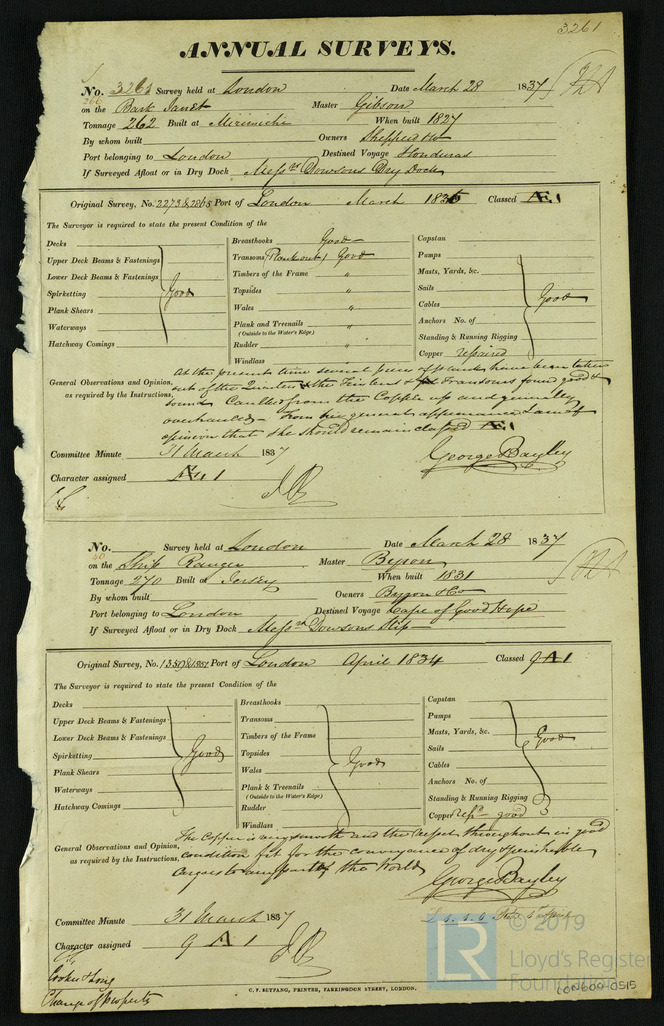 3261
ANNUAL SURVEYS.
No. 3261 Survey held at London Date March 28 1837
266
on the Bark Janet Master Gibson
Tonnage 262 Built at Mirimichi When built 1827
By whom built Owners Sheppard &Co
Port belonging to London Destined Voyage Honduras
If Surveyed Afloat or in Dry Dock Messrs Dowsons Dry Dock
Original Survey, No. 2273 & 2865 Port of London March 1836 Classed Æ1
The Surveyor is required to state the present Condition of the
Decks
Upper Deck Beams & Fastenings
Lower Deck Beams & Fastenings
Spirketting Good
Plank Shears
Waterways
Hatchway Comings
Breasthooks Good
Transoms (Plank out) Good
Timbers of the Frame "
Topsides "
Wales "
Plank and Treenails "
(Outside to the Water's Edge)
Rudder "
Windlass
Capstan
Pumps
Masts, Yards, &c.
Sails
Cables Good
Anchors No. of
Standing & Running Rigging
Copper repaired
General Observations and Opinion, as required by the Instructions,
At the present time several pieces of plank have been taken
out of the Quarters & the Timbers & Transoms found good &
sound Caulked from the Copper up and generally
overhauled - From her general appearance I am of
opinion that she should remain classed Æ1
George Bayley
Committee Minute 31 March 1837
Character assigned Æ 1
No. Survey held at London Date March 28 1837
40
on the Ship Ranger Master Byron
Tonnage 270 Built at Jersey When built 1831
By whom built Owners Byron & Co
Port belonging to London Destined Voyage Cape of Good Hope
If Surveyed Afloat or in Dry Dock Messrs Dowsons Slip
Original Survey, No. Port of London April 1834 Classed 9 A 1
The Surveyor is required to state the present Condition of the
Decks
Upper Deck Beams & Fastenings
Lower Deck Beams & Fastenings
Spirketting Good
Plank Shears
Waterways
Hatchway Comings
Breasthooks
Transoms
Timbers of the Frame
Topsides
Wales Good
Plank & Treenails
(Outside to the Water's Edge)
Rudder
Windlass
Capstan
Pumps
Masts, Yards, &c. Good
Sails
Cables
Anchors No. of
Standing & Running Rigging
Copper repd good
General Observations and Opinion, as required by the Instructions,
The Copper is very smooth and the vessel throughout in good
condition fit for the conveyance of dry & perishable
cargoes to any part of the World
George Bayley
Committee Minute 31 March 1837
Character assigned 9 A 1
Change of property
C. F. SEYFANG, PRINTER, FARRINGDON STREET, LONDON.
LR
© 2019
Lloyd's Register
Foundation
LON604-0515